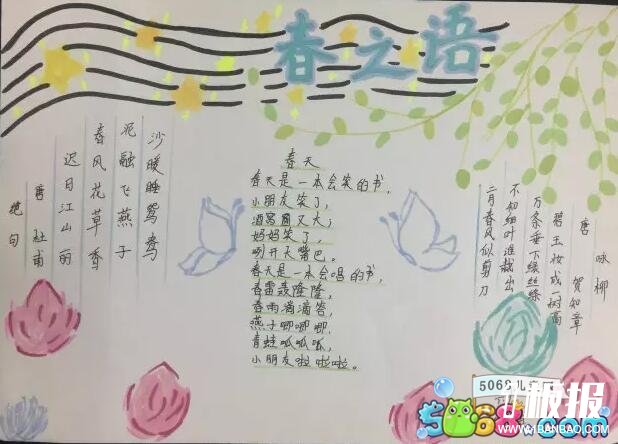 春之语
绝句
唐 杜甫
迟日江山丽
春风花草香
泥融飞燕子
沙暖睡鸳鸯
春天
春天是一本会笑的书,
小朋友笑了,
酒窝圆又大;
妈妈笑了,
咧开大嘴巴。
春天是一本会唱的书,
春雷轰隆隆,
春雨滴滴答,
燕子唧唧唧,
青蛙呱呱呱,
小朋友啦啦啦。
咏柳
唐 贺知章
碧玉妆成一树高
万条垂下绿丝绦
不知细叶谁裁出
二月春风似剪刀
5068儿
板报
WWW.1BANBAO.COM